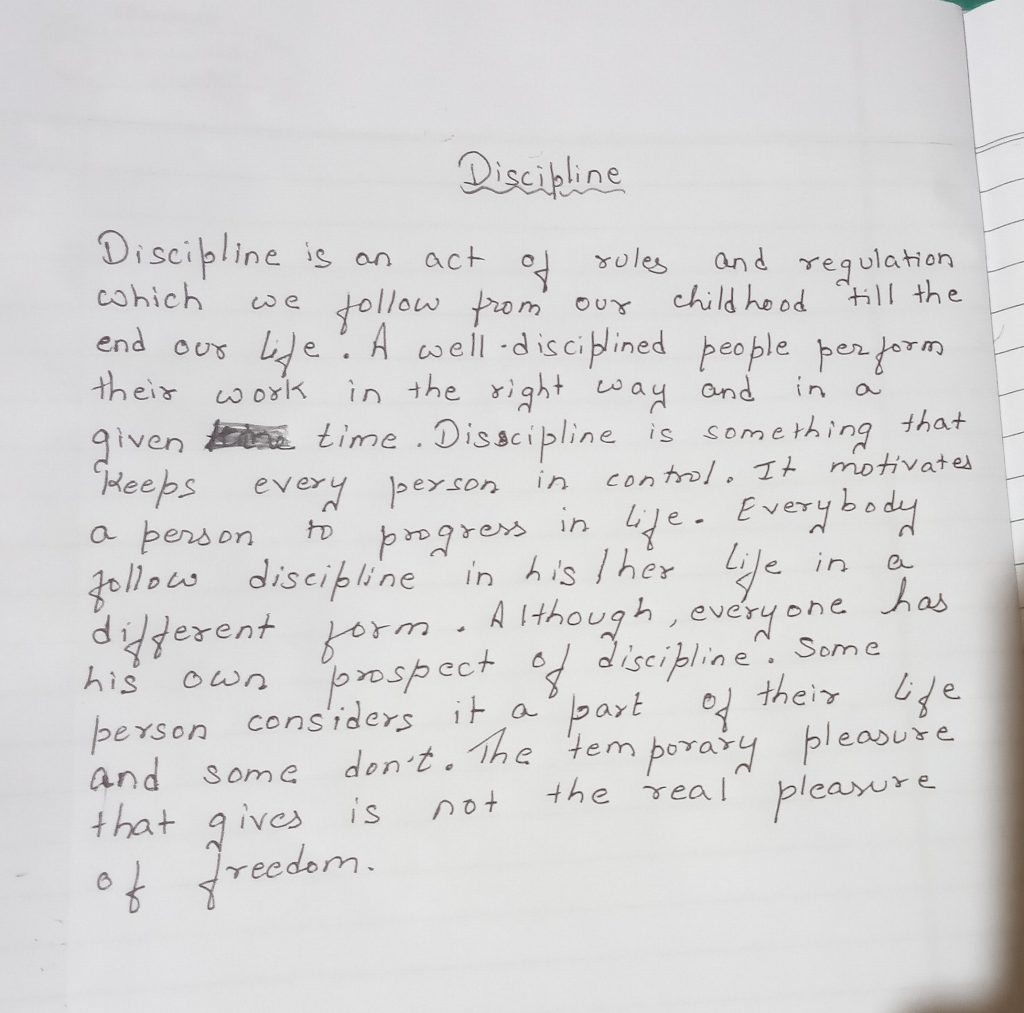 Discipline
Discipline is an act of rules and regulation
which we follow from our childhood till the
end our life. A well-disciplined people perform
their work in the right way and in a
given time. Disscipline is something that
keeps every person in control. It motivates
a person to progress in life. Everybody
follow discipline in his/her life in a
different form. Although, everyone has
his own prospect of discipline. Some
person considers it a part of their life
and some don't. The temporary pleasure
that gives is not the real pleasure
of freedom.